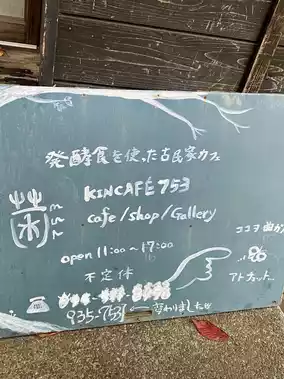 発酵食を使った古民家カフェ
KINCAFÉ 753
cafe/shop/Gallery
open 11:00〜17:00
不定休
935-7531 ← 変わりました
ココヲ曲ガ
アトカット